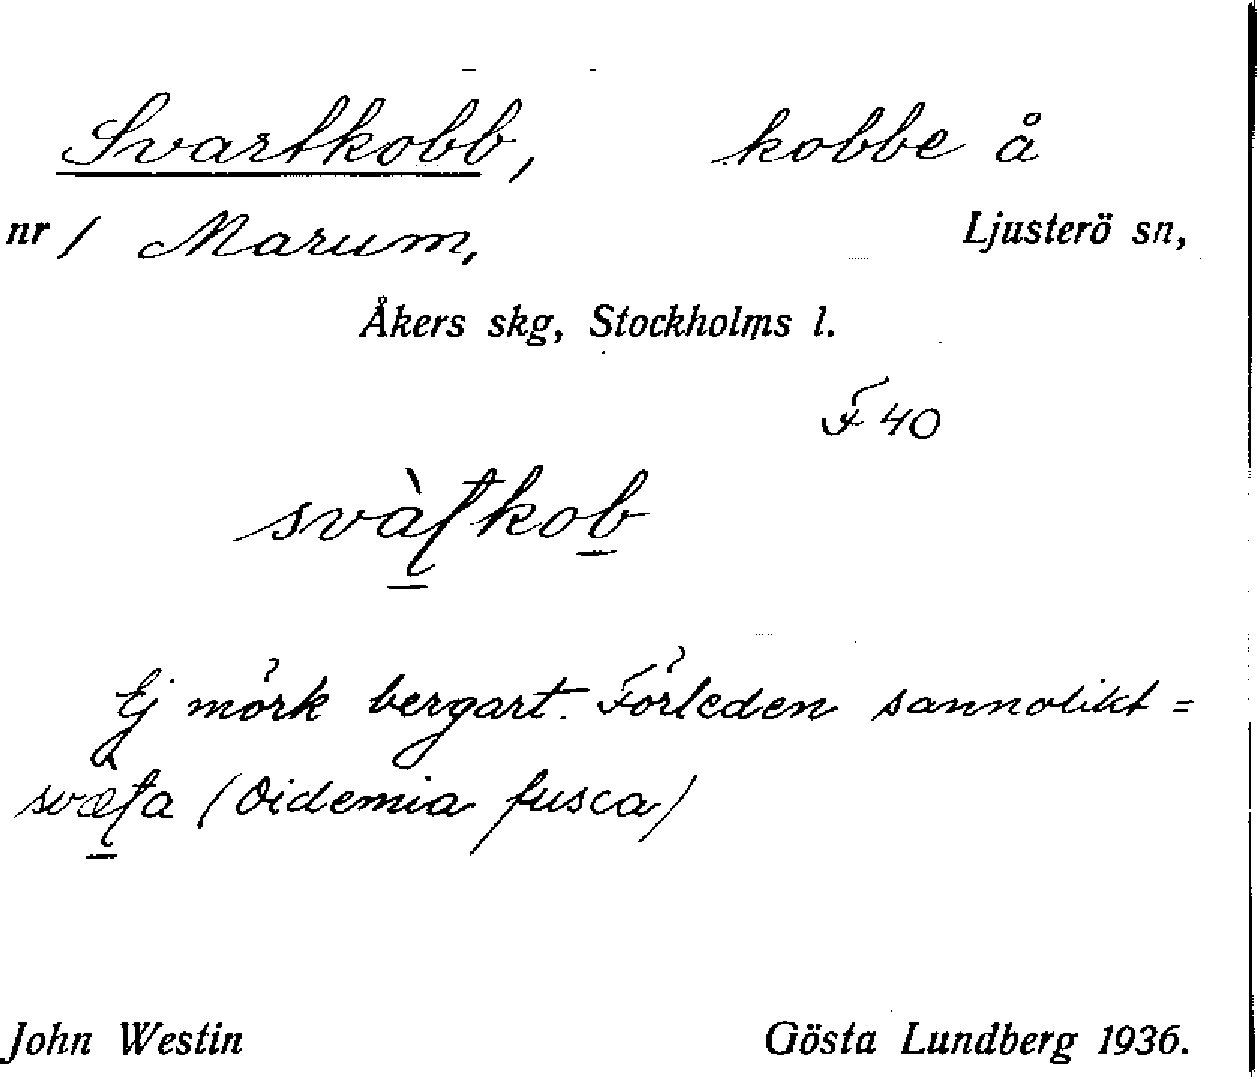 Svartkobb, kobbe å
nr 1 Marum, Ljusterö sn,
Åkers skg, Stockholms l.
F 40
svàʈkob
Ej mörk bergart. Förleden sannolikt =
svæʈa (Oidemia fusca)
John Westin Gösta Lundberg 1936.